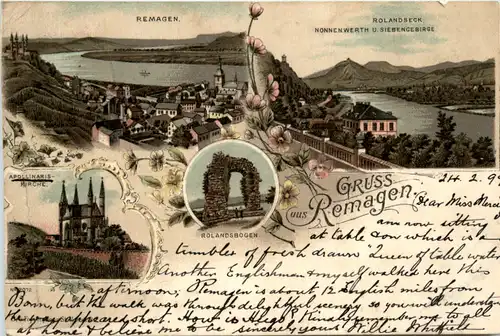 REMAGEN.
ROLANDSECK
NONNENWERTH U. SIEBENGEBIRGE
APOLLINARIS-
KIRCHE.
ROLANDSBOGEN
GRUSS
aus Remagen.
24.2.9
Dear Miss
am now sitting
at table on which is a
tumbler of fresh drawn "Queen of table waters"
Another Englishman & myself walked here this
afternoon, Remagen is about 12 English miles from
Bonn, but the walk was through delightful scenery so you will understand
the way appeared short. How is all
at home & believe me to be sincerely yours Willie